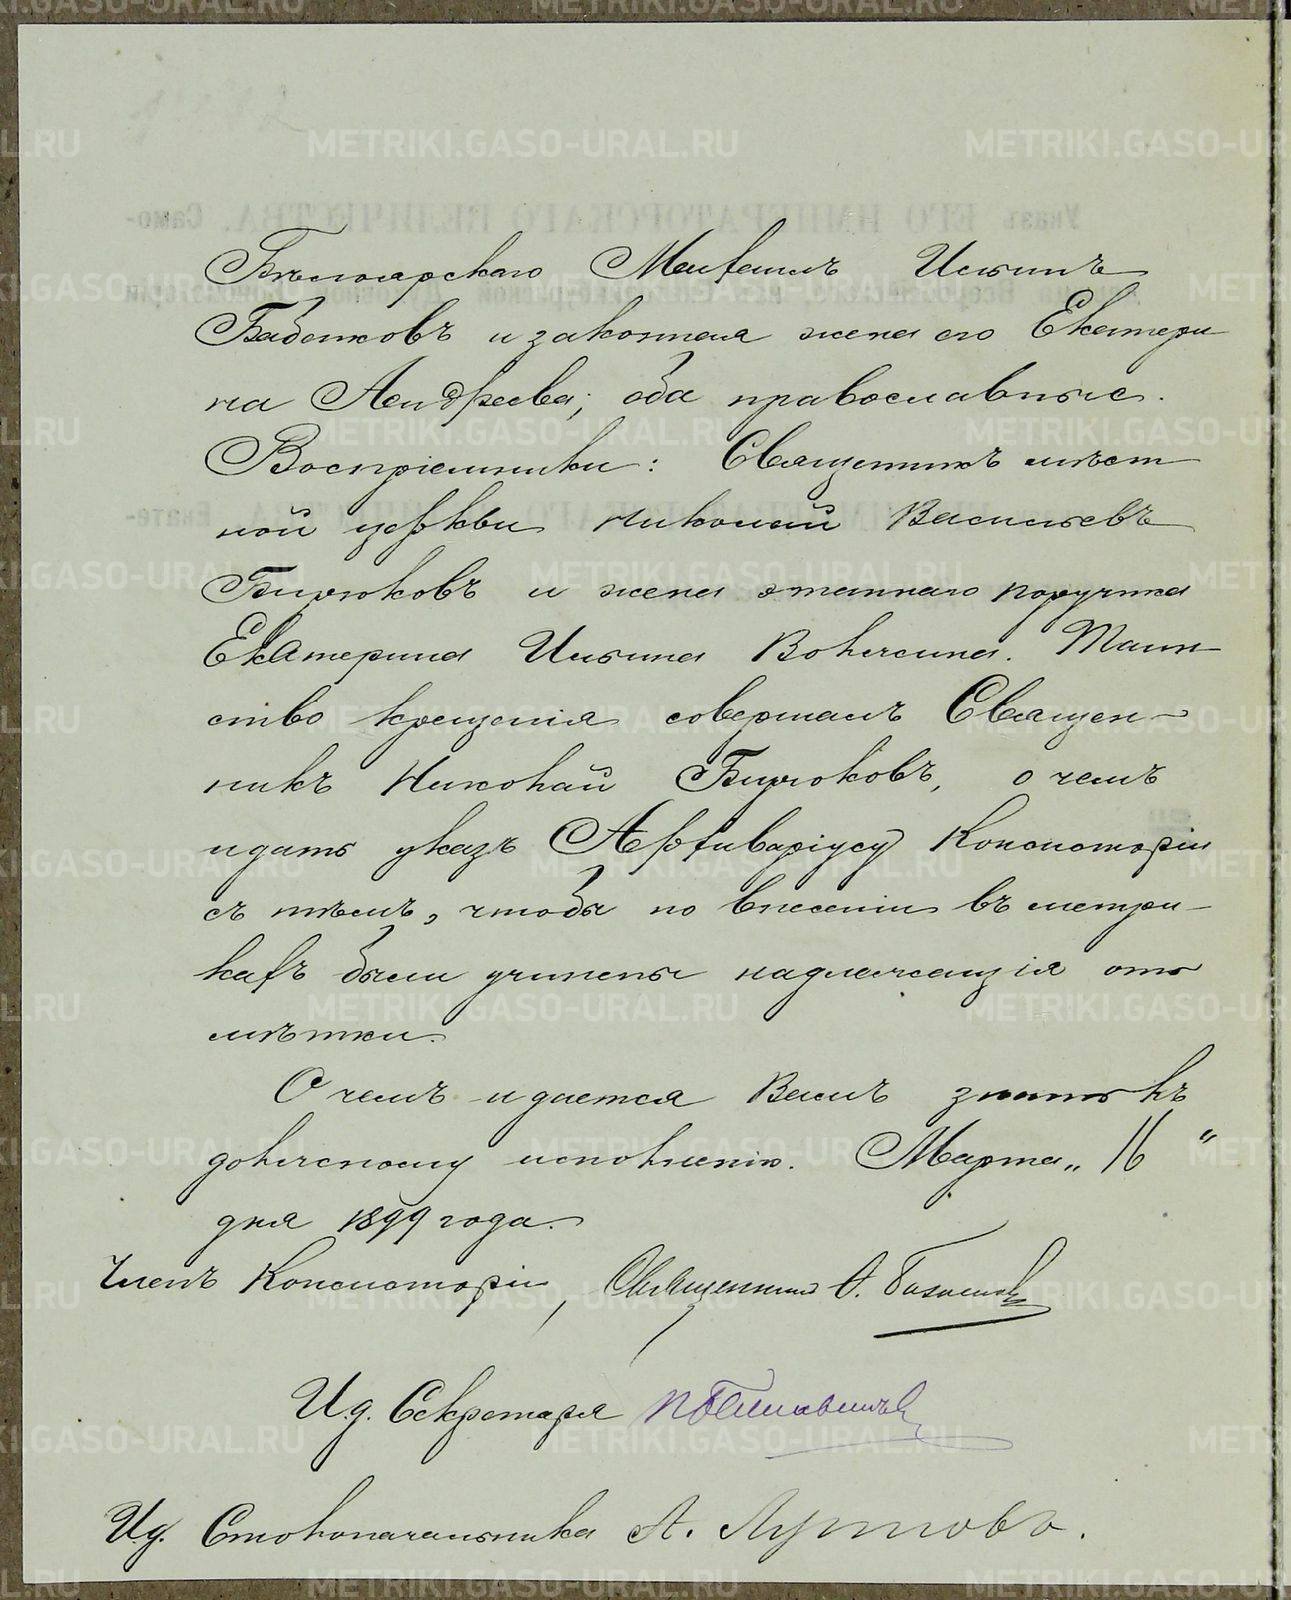 Бѣлоярскаго Михаилъ Ильинъ
Бабенковъ и законная жена его Екатери
на Андреева, оба православные.
Воспріемники: Священникъ мѣст
ной церкви Николай Васильевъ
Бирюковъ и жена этапнаго поручика
Екатерина Ильина Вольхина. Таин
ство крещенія совершалъ Священ-
никъ Николай Бирюковъ, о чемъ
и дать указъ Архиваріусу Консисторіи
съ тѣмъ, чтобы по внесеніи въ метри-
кахъ были учинены надлежащія от
мѣтки.
О чемъ и дается Вамъ знать къ
должному исполненію. Марта „16“
дня 1899 года.
Членъ Консисторіи, Священникъ
И. д. Секретаря
И. д. Столоначальника А.
METRIKI.GASO-URAL.RU